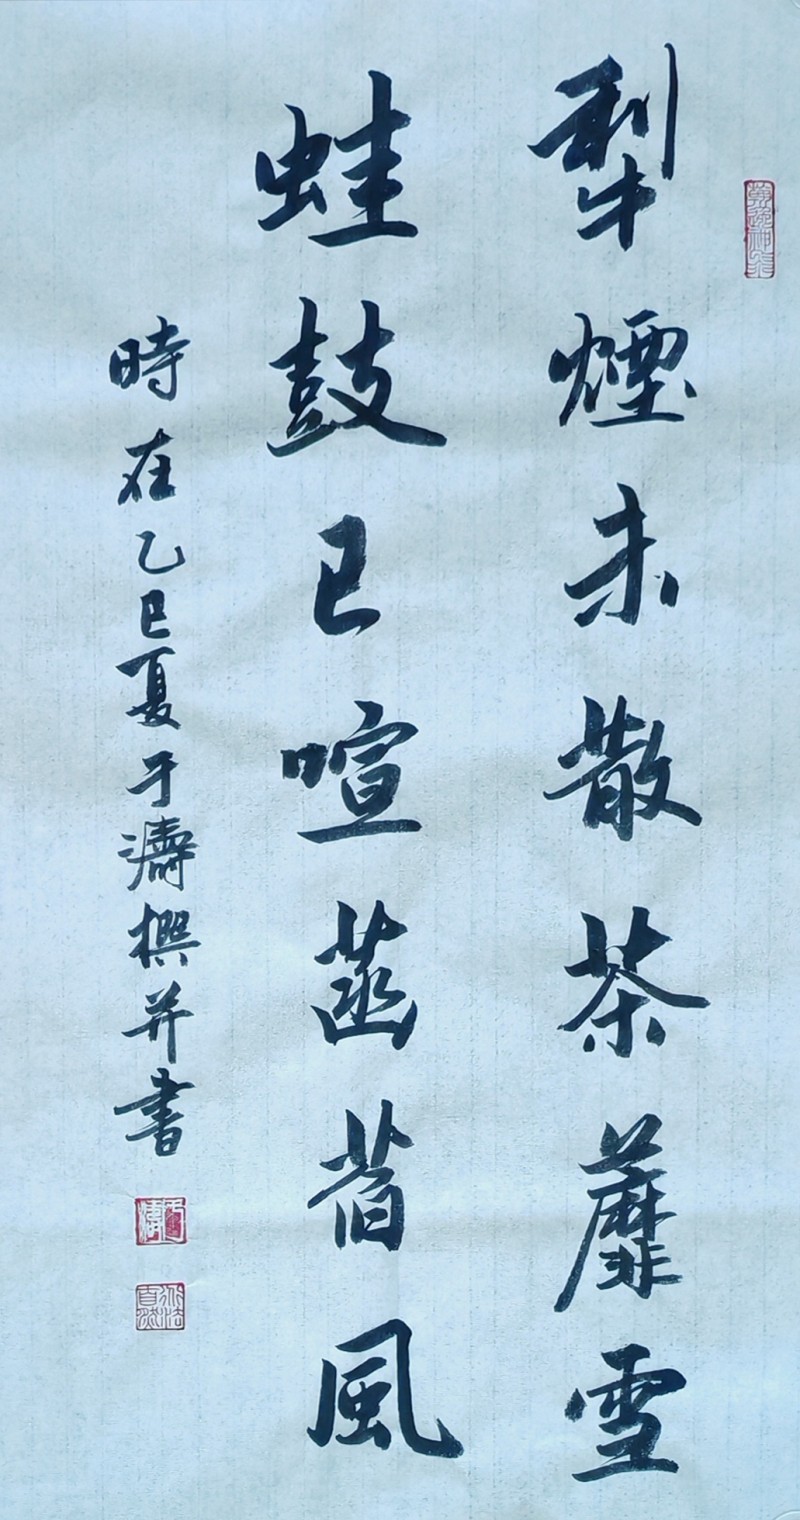 犁煙未散荼蘼雪
蛙鼓已喧菡萏風
時在乙巳夏于濤撰并書